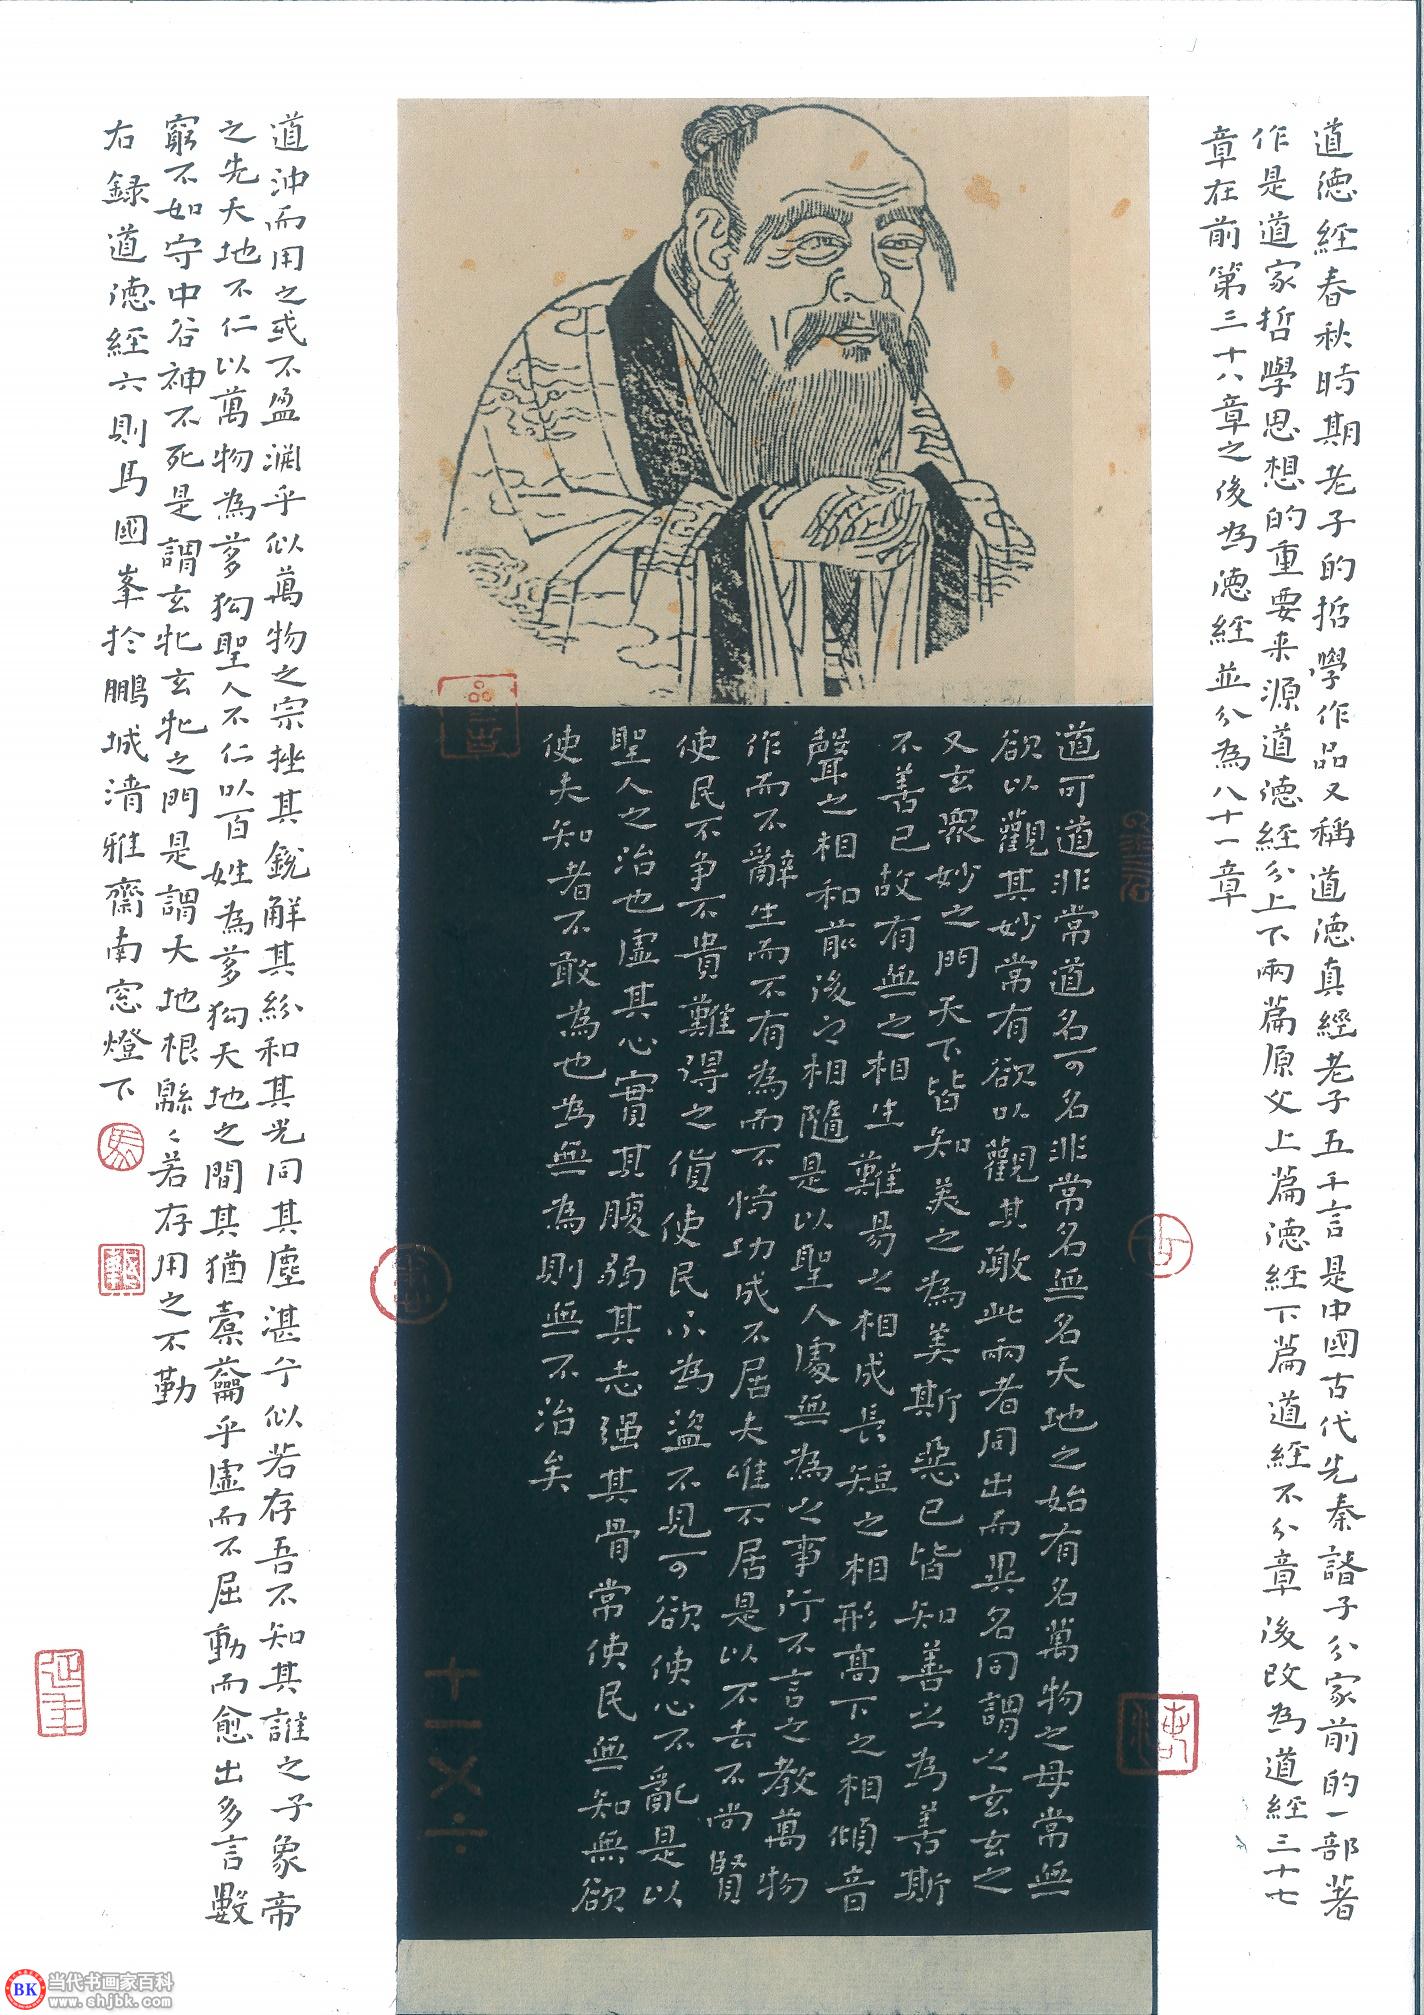 道德經春秋時期老子的哲學作品又稱道德真經老子五千言是中國古代先秦諸子分家前的一部著
作是道家哲學思想的重要来源道德經分上下兩篇原文上篇德經下篇道經不分章後改為道經三十七
章在前第三十八章之後為德經並分為八十一章
道可道非常道名可名非常名無名天地之始有名萬物之母常無
欲以觀其妙常有欲以觀其徼此兩者同出而異名同謂之玄玄之
又玄眾妙之門天下皆知美之為美斯惡已皆知善之為善斯
不善已故有無之相生難易之相成長短之相形高下之相傾音
聲之相和前後之相隨是以聖人處無為之事行不言之教萬物
作而不辭生而不有為而不恃功成不居夫唯不居是以不去不尚賢
使民不争不貴難得之貨使民不為盜不見可欲使心不亂是以
聖人之治也虛其心實其腹弱其志强其骨常使民無知無欲
使夫知者不敢為也為無為則無不治矣
道沖而用之或不盈淵乎似萬物之宗挫其銳解其紛和其光同其塵湛兮似若存吾不知其誰之子象帝
之先天地不仁以萬物為芻狗聖人不仁以百姓為芻狗天地之間其猶橐籥乎虛而不屈動而愈出多言數
窮不如守中谷神不死是謂玄牝玄牝之門是謂天地根緜〻若存用之不勤
右録道德經六則馬國峯於鵬城清雅齋南窓燈下
BK 当代书画家百科
www.shjbk.com